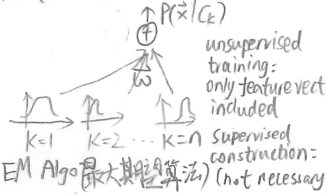 P(x⃗|Ck)
+
w
unsupervised
training:
only feature vect
included
K=1 K=2 ... K=n
Supervised
construction:
(not necessary
EM Algo 最大期望算法)